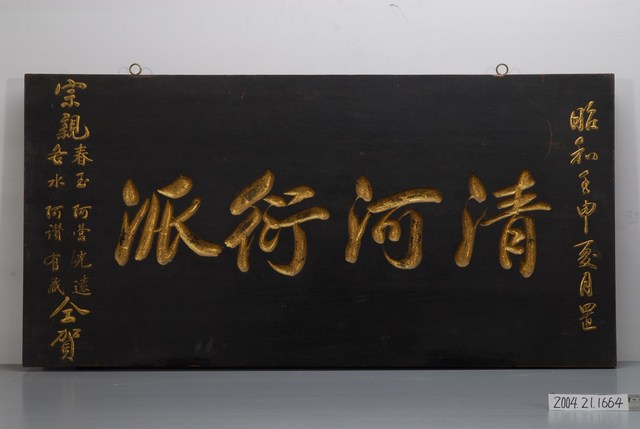 昭和壬申夏月置
清河衍派
宗親
春玉 阿營 光遠
水 阿讚 有
仝賀
2004.21.1664